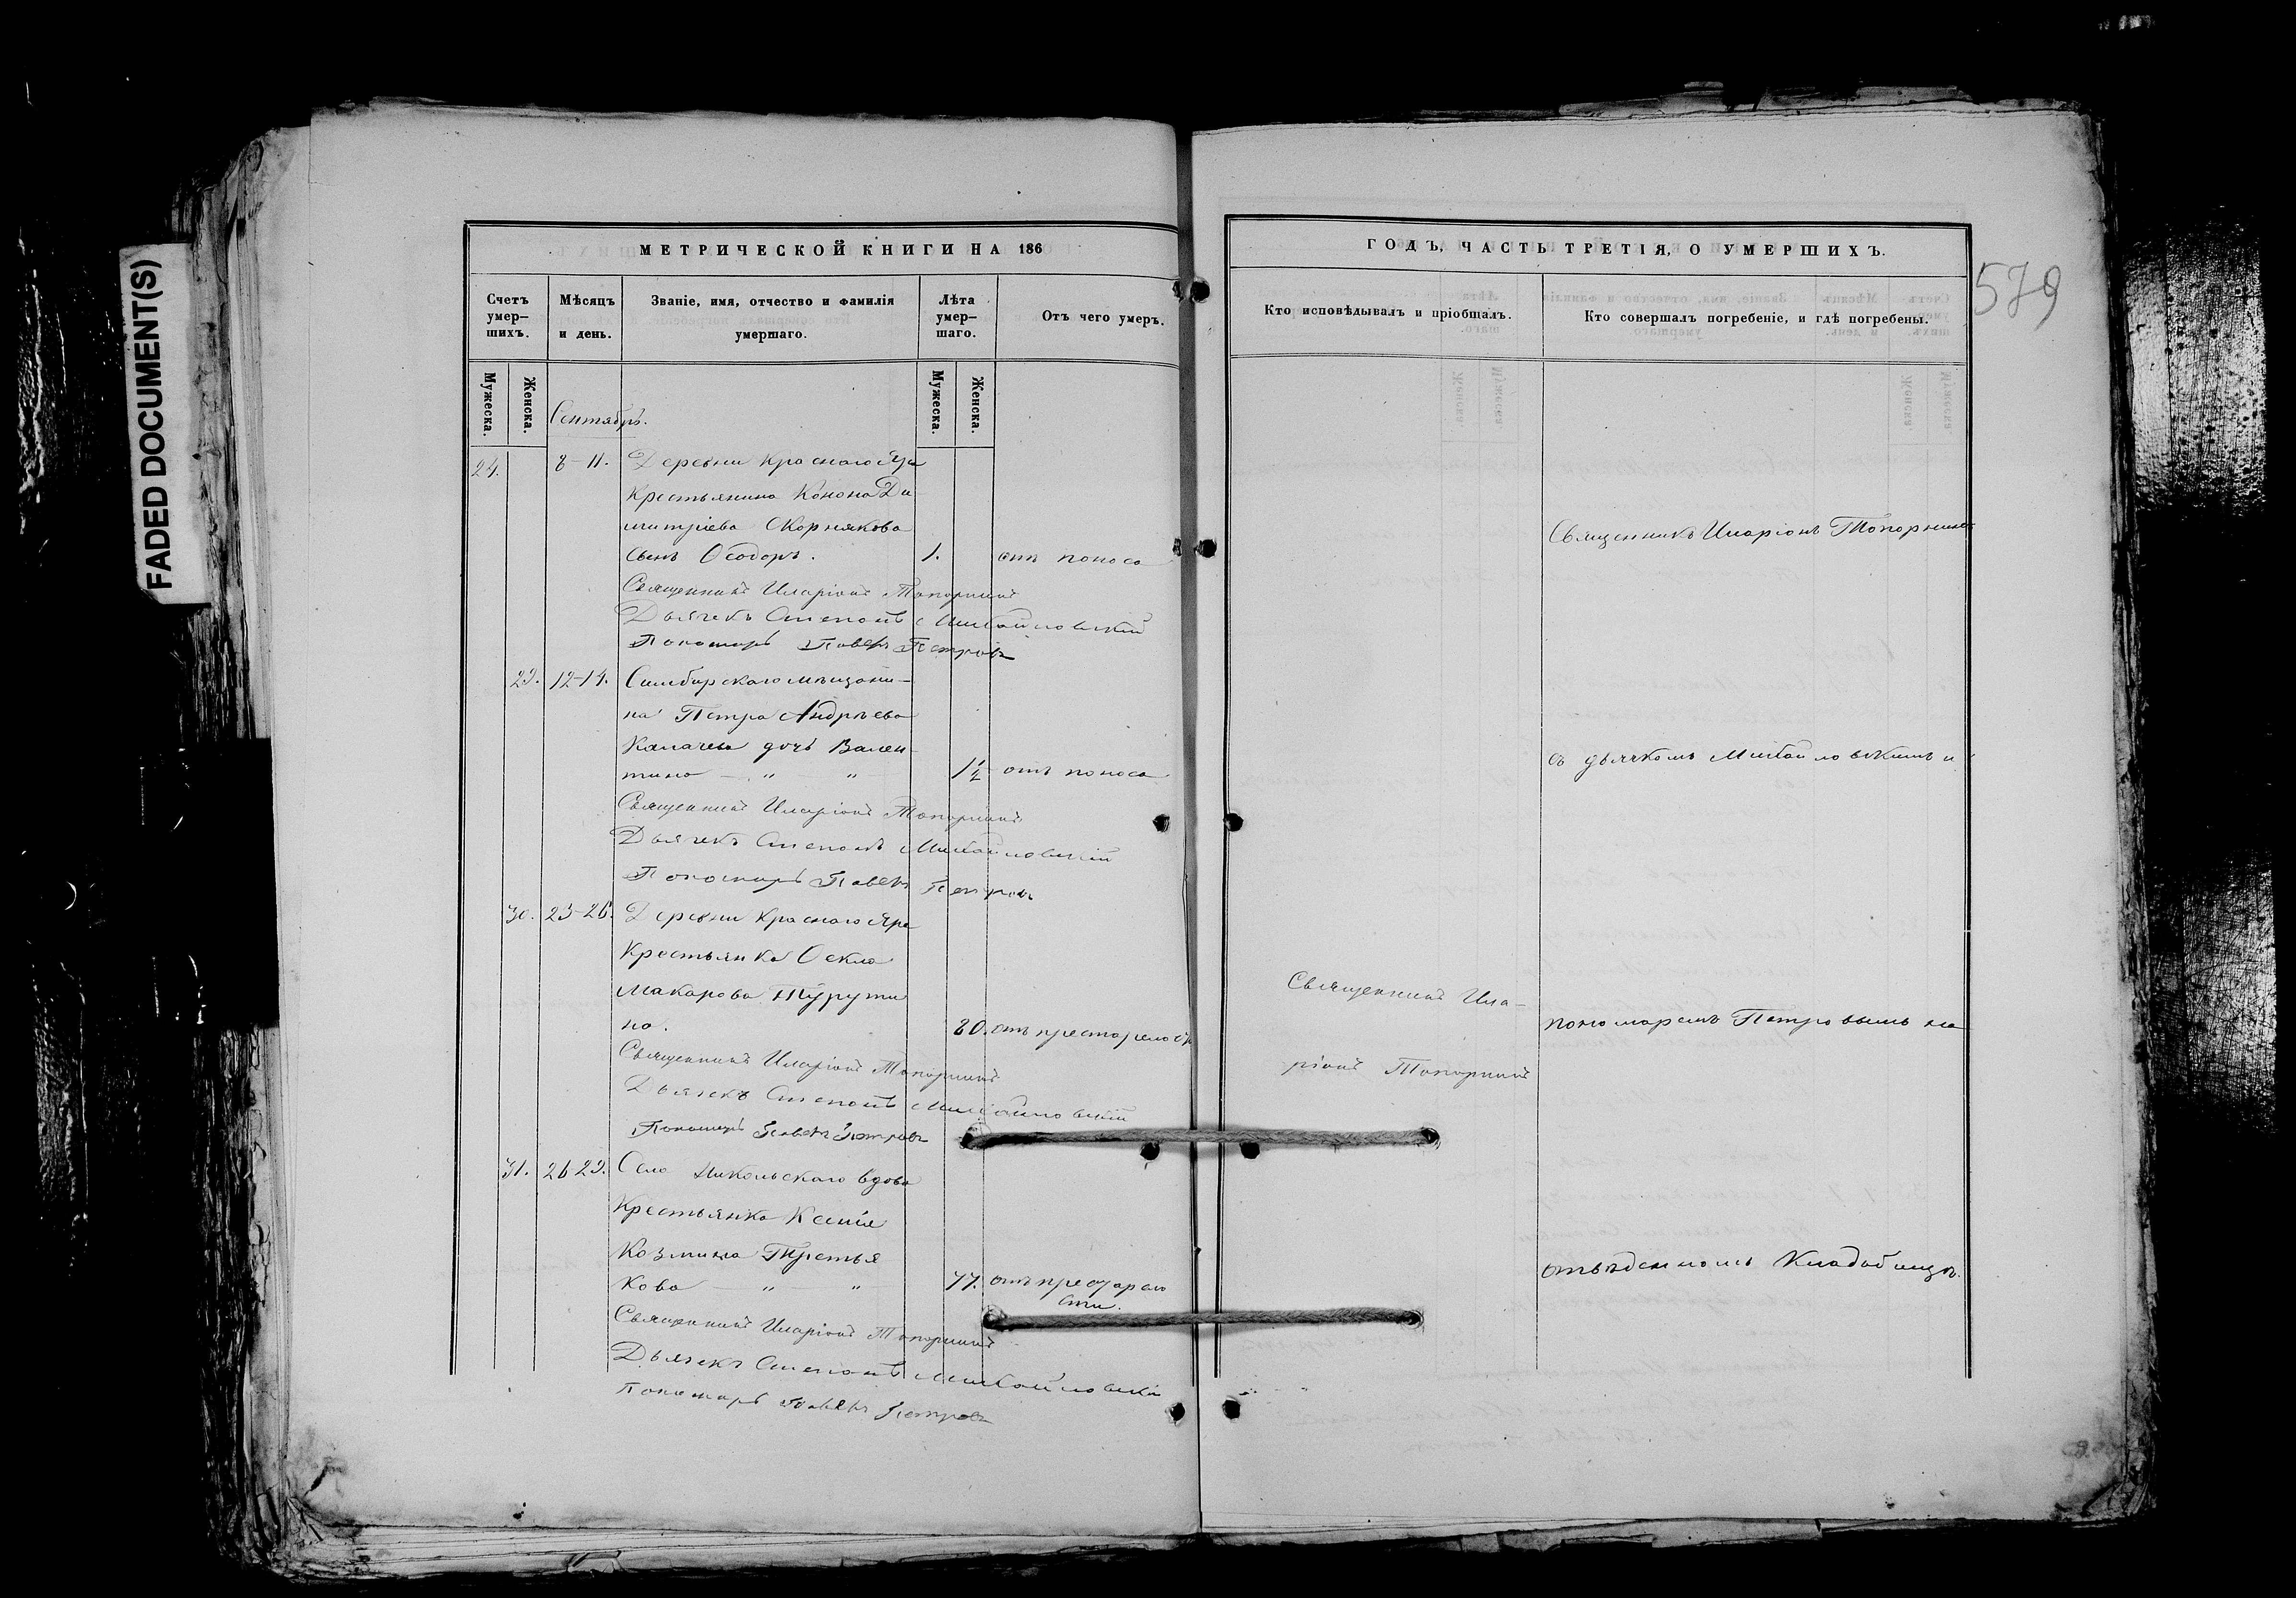 FADED DOCUMENT(S)
МЕТРИЧЕСКОЙ КНИГИ НА 186
Счетъ умер–шихъ.
Мѣсяцъ и день.
Званіе, имя, отчество и фамилія умершаго.
Лѣта умер–шаго.
Отъ чего умеръ.
Мужеска.
Женска.
Мужеска.
Женска.
Сентябрь.
24. 8–11. Деревни Краснаго Яра
Крестьянина Конона Ди
митріева Скорнякова
сынъ Ѳеодоръ. 1. отъ поноса
Священникъ Иларіонъ Топорнинъ
Дьячекъ Степанъ Михайловскій
Пономарь Павелъ Петровъ
29. 12–14. Симбирскаго мѣщани–
на Петра Андреева
Калачева дочь Вален–
тина — „ — „ 1½ отъ поноса
Священникъ Иларіонъ Топорнинъ
Дьячекъ Степанъ Михайловскій
Пономарь Павелъ Петровъ
30. 23–26. Деревни Краснаго Яра
Крестьянка Ѳекла
Макарова Турути
на. 80. отъ престарелости
Священникъ Иларіонъ Топорнинъ
Дьячекъ Степанъ Михайловскій
Пономарь Павелъ Петровъ
31. 26 29. Села Никольскаго вдова
Крестьянка Ксенія
Козмина Третья
кова — „ — „ 77. отъ престарело
сти.
Священникъ Иларіонъ Топорнинъ
Дьячекъ Степанъ Михайловскій
Пономарь Павелъ Петровъ
ГОДЪ, ЧАСТЬ ТРЕТІЯ, О УМЕРШИХЪ.
579
Кто исповѣдывалъ и пріобщалъ.
Кто совершалъ погребеніе, и гдѣ погребены.
Священникъ Иларіонъ Топорнинъ
съ дьячкомъ Михайловскимъ и
Священникъ Ила–
ріонъ Топорнинъ
пономаремъ Петровымъ на
отведенномъ Кладбищѣ.